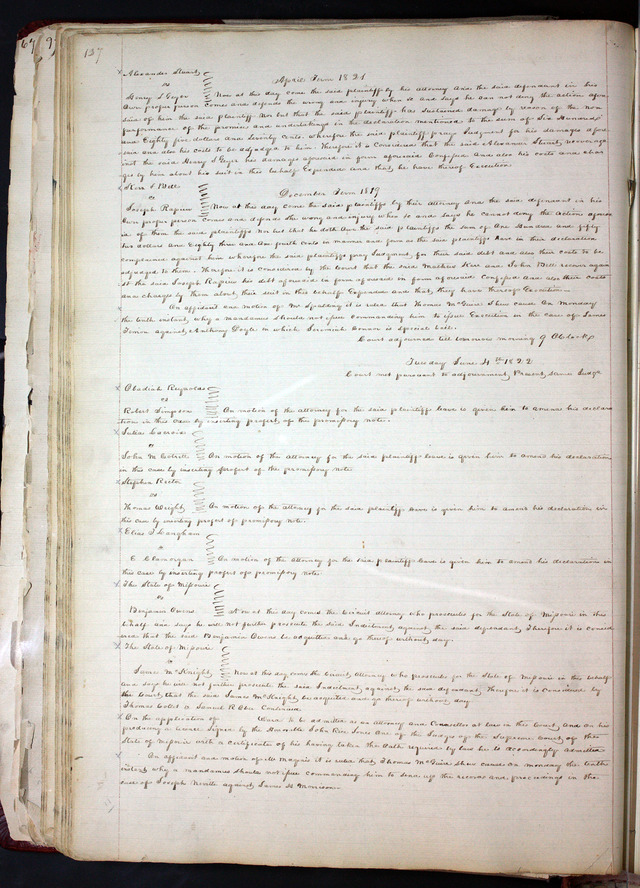 137
Alexander Stuart
April Term 1821
vs
Henry S Geyer Now at this day come the said plaintiff by his attorney and the said defendant in his
own proper person comes and defends the wrong and injury when &c and says he can not deny the action afore
said of him the said plaintiff Nor but that the said plaintiff has sustained damage by reason of the non
performance of the promises and undertakings in the declaration mentioned to the sum of Six Hundred
and Eighty five dollars and Seventy Cents. wherefore the said plaintiff prays Judgment for his damages afore
said and also his costs to be adjudged to him. Therefore it is Considered that the said Alexander Stuart recover aga
inst the said Henry S Geyer his damages aforesaid in form aforesaid Confessed and also his costs and char
ges by him about his suit in this behalf Expended and that he have thereof Execution
Kerr & Bell
December Term 1819
vs
Joseph Now at this day come the said plaintiffs by their Attorney and the said defendant in his
own proper person comes and defends the wrong and injury when &c and says he cannot deny the Action aforesa
id of them the said plaintiffs Nor but that he doth owe the said plaintiffs the sum of One Hundred and fifty
two dollars and Eighty three and one fourth cents in manner and form as the said plaintiffs have in their declaration
complained against him wherefore the said plaintiffs pray Judgment for their said debt and also their costs to be
adjudged to them. Therefore it is considered by the Court that the said Mathew Kerr and John Bell recover again
st the said Joseph his debt aforesaid in form aforesaid in form aforesaid Confessed and also their costs
and charges by them about their suit in this behalf Expended and that they have thereof Execution
On affidavit and motion of Mr Spalding it is ruled that Thomas McGuire Shew cause on Monday
the tenth instant, why a mandamus should not issue commanding him to issue Execution in the case of James
against Anthony Doyle in which Jeremiah Connor is Special bail.
Court adjourned till tomorrow morning 9 O'Clock
Tuesday June 4th 1822
Court met pursuant to adjournment, Present, same Judge
Obadiah Reynolds
vs
Robert Simpson On motion of the attorney for the said plaintiff leave is given him to amend his declara
tion in this case by inserting profert of the promissory note.
Julia
vs
John On motion of the Attorney for the said plaintiff leave is given him to amend his declaration
in this case by inserting profert of the promissory note
Stephen Rector
vs
Thomas Wright On motion of the attorney for the said plaintiff leave is given him to amend his declaration in
this case by inserting profert of promissory note.
Elias T Langham
vs
E Clamorgan On motion of the Attorney for the said plaintiff leave is given him to amend his declaration in
this case by inserting profert of promissory note.
The State of Missouri
vs
Benjamin Owens Now at this day comes the Circuit Attorney who prosecutes for the State of Missouri in this
behalf and says he will not further prosecute the said Indictment against the said defendant, Therefore it is consid
ered that the said Benjamin Owens be acquitted and go thereof without day.
The State of Missouri
vs
James McKnight Now at this day comes the Circuit Attorney who prosecutes for the State of Missouri in this behalf
and says he will not further prosecute the said Indictment against the said defendant, Therefore it is Considered by
the Court that the said James McKnight be acquitted and go thereof without day.
Thomas a Samuel R Ober Continued
On the application of to be admitted as an Attorney and Councellor at law in this Court, and on his
producing a license signed by the Honorable John Rice Jones One of the Judges of the Supreme Court, of the
State of Missouri with a certificate of his having taken the Oath required by law he is accordingly admitted
On affidavit and motion of Mr it is ruled that Thomas McGuire shew cause on Monday the tenth
instant why a mandamus should not issue Commanding him to send up the record and proceedings in the
case of Joseph against James H Morrison